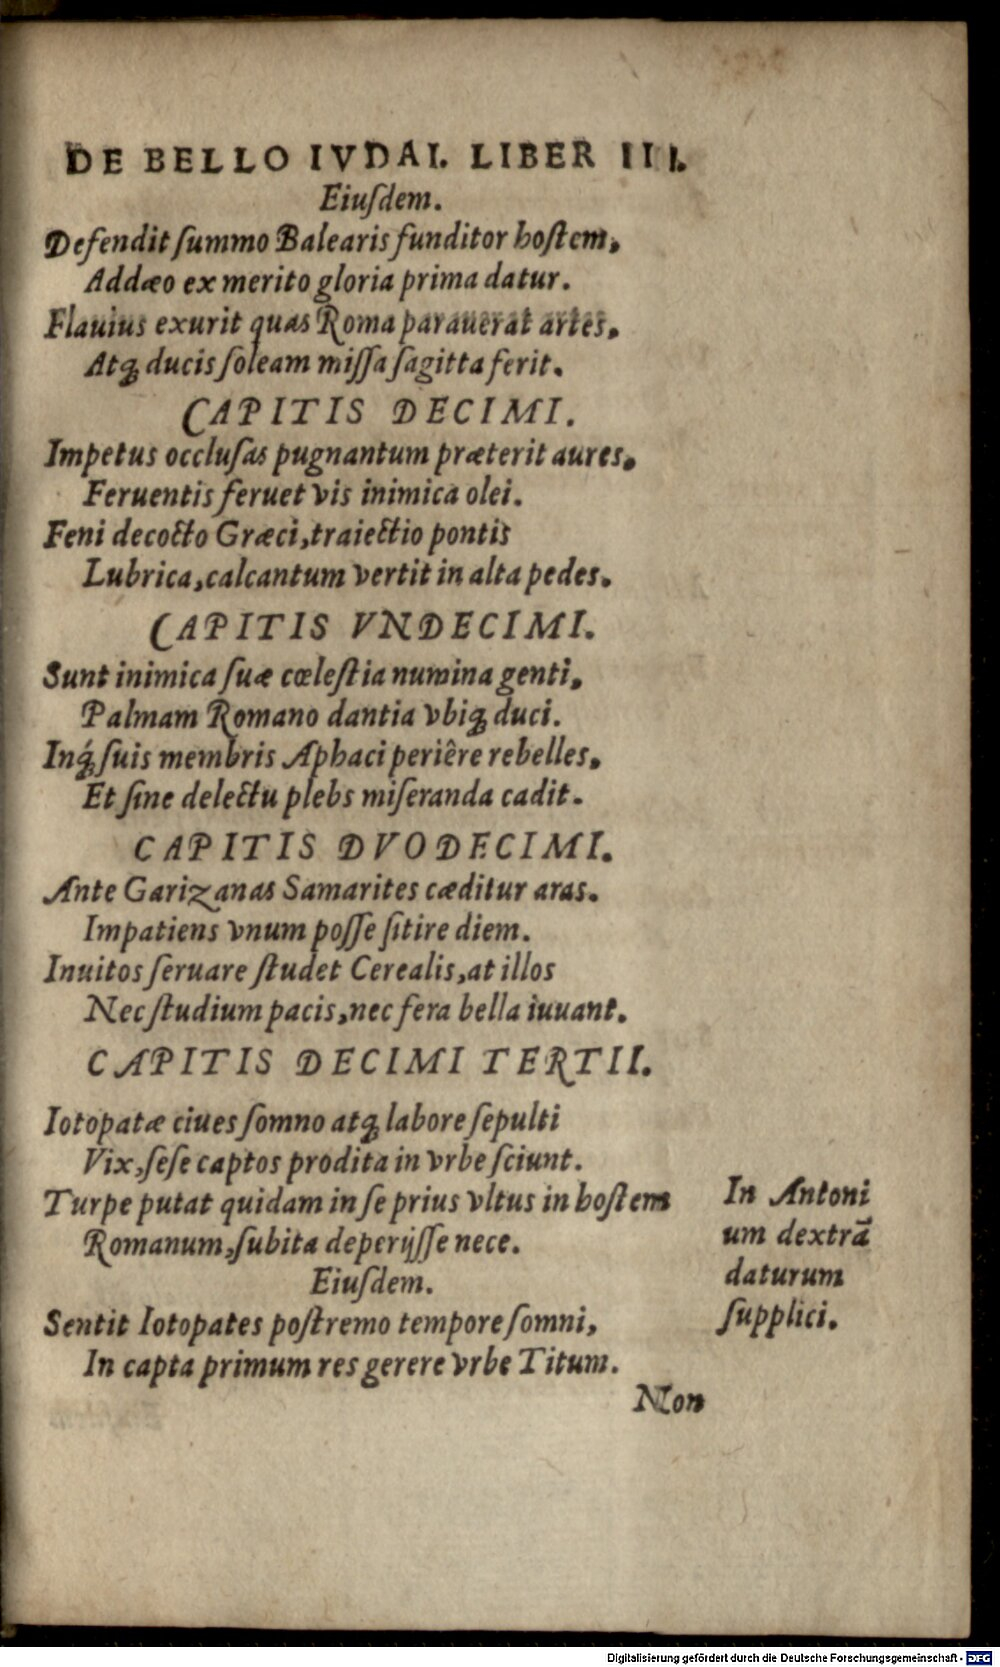 DE BELLO IVDAI. LIBER III.
Eiuſdem.
Defendit ſummo Balearis funditor hoſtem,
Addæo ex merito gloria prima datur.
Flauius exurit quas Roma parauerat artes,
Atq́ꝫ ducis ſoleam miſſa ſagitta ferit.
CAPITIS DECIMI.
Impetus occluſas pugnantum præterit aures,
Feruentis feruet vis inimica olei.
Feni decocto Græci, traiectio pontis
Lubrica, calcantum vertit in alta pedes.
CAPITIS VNDECIMI.
Sunt inimica ſuæ cœleſtia numina genti,
Palmam Romano dantia vbiqꝫ duci.
Inq́ꝫ ſuis membris Aphaci periêre rebelles,
Et ſine delectu plebs miſeranda cadit.
CAPITIS DVODECIMI.
Ante Garizanas Samarites cæditur aras.
Impatiens vnum poſſe ſitire diem.
Inuitos ſeruare ſtudet Cerealis, at illos
Nec ſtudium pacis, nec fera bella iuuant.
CAPITIS DECIMI TERTII.
Iotopatæ ciues ſomno atqꝫ labore ſepulti
Vix, ſeſe captos prodita in vrbe ſciunt.
Turpe putat quidam in ſe prius vltus in hoſtem
Romanum, ſubita deperijſſe nece.
In Antoni
um dextrã
daturum
ſupplici.
Eiuſdem.
Sentit Iotopates poſtremo tempore ſomni,
In capta primum res gerere vrbe Titum.
Non
Digitalisierung gefördert durch die Deutsche Forschungsgemeinschaft - DFG